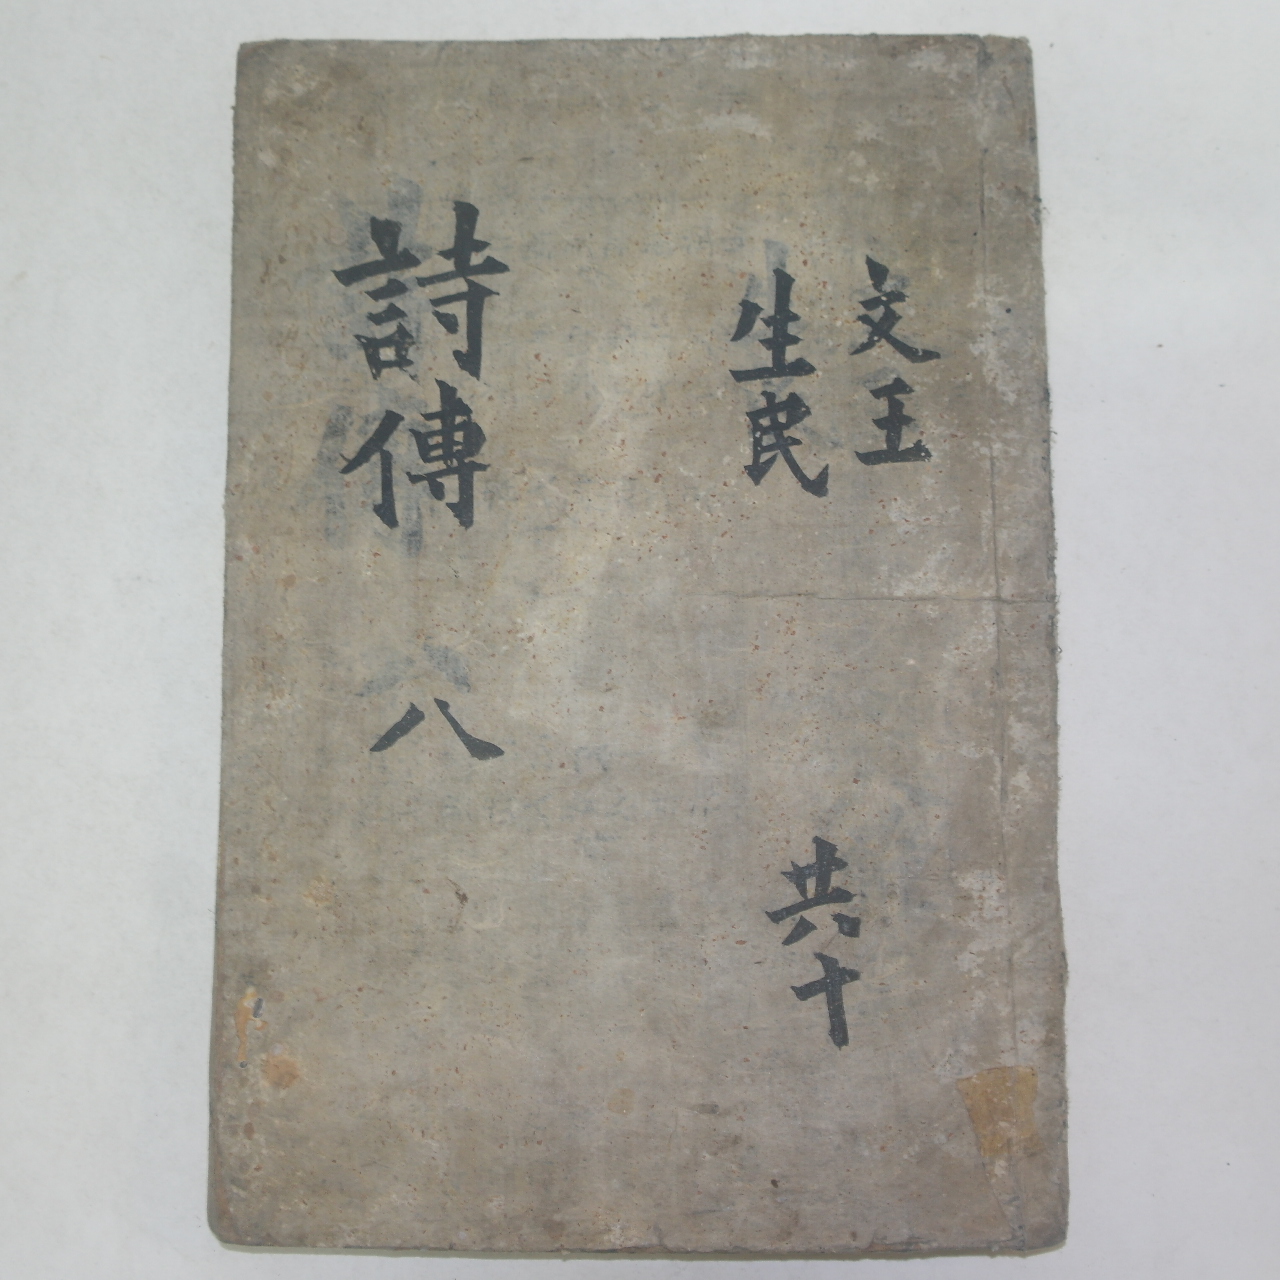 文王
生民
共十
詩傳 八